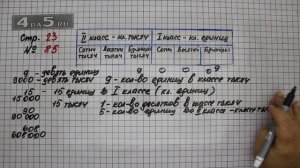 4a5GU
Стр. 23
№ 85
II класс - кл. тысяч
I класс - кл. единиц
Сотни тысяч
Десятки тысяч
Единицы тысяч
Сотни
Десятки
Единицы
9 - девять единиц
9000 - девять тысяч
9 - кол-во единиц в классе тысяч
15 - 15 единиц в I классе (кл. единиц)
15 000
15 тысяч
1 - кол-во десятков в классе тысяч
5 - кол-во единиц
80
80 000
608
608 000